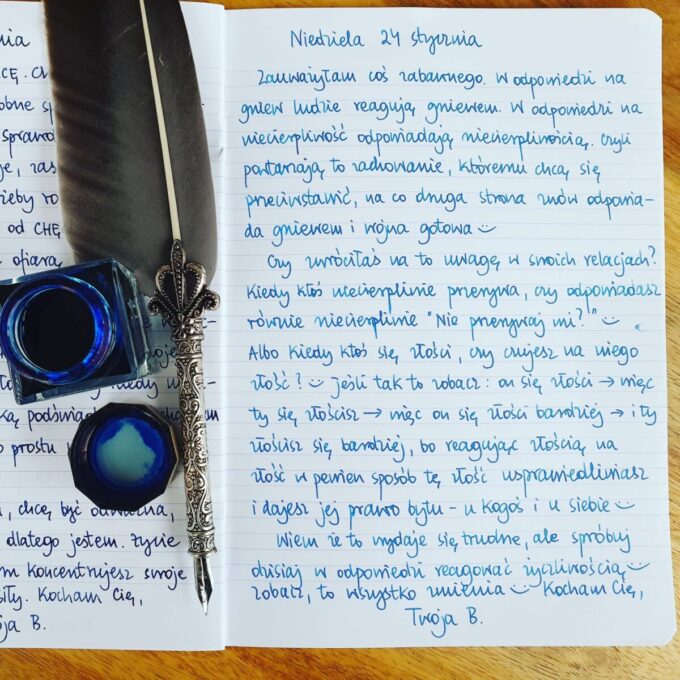 nia
CĘ. Ch
obne sp
sprawd
je, zas
żeby ro
od CHĘ
ofiarą
Kiedy w
ką podświa
o prostu
, chcę, być odważna,
dlatego jestem. Życie
m koncentrujesz swoje
siły. Kocham Cię,
ja B.
Niedziela 24 stycznia
Zauważyłam coś zabawnego. W odpowiedzi na
gniew ludzie reagują gniewem. W odpowiedzi na
niecierpliwość odpowiadają niecierpliwością. Czyli
powtarzają to zachowanie, któremu chcą się
przeciwstawić, na co druga strona znów odpowia-
da gniewem i wojna gotowa
Czy zwróciłaś na to uwagę w swoich relacjach?
Kiedy ktoś niecierpliwie przerywa, czy odpowiadasz
równie niecierpliwie "Nie przerywaj mi?!"
Albo kiedy ktoś się złości, czy czujesz na niego
złość? Jeśli tak to zobacz: on się złości → więc
ty się złościsz → więc on się złości bardziej → i ty
złościsz się bardziej, bo reagując złością na
złość w pewien sposób tę złość usprawiedliwiasz
i dajesz jej prawo bytu - u kogoś i u siebie
Wiem że to wydaje się trudne, ale spróbuj
dzisiaj w odpowiedzi reagować życzliwością
zobacz, to wszystko zmienia Kocham Cię,
Twoja B.